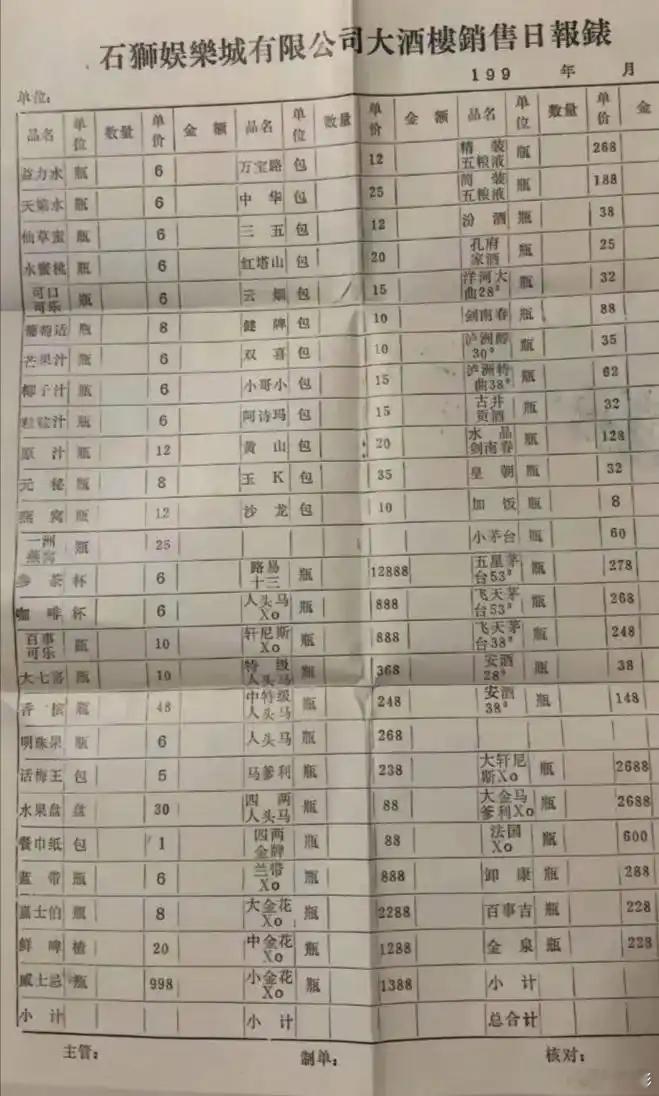 石獅娛樂城有限公司大酒樓銷售日報錶
199 年 月
单位:
品名 单位 数量 单价 金额 品名 单位 数量 单价 金额 品名 单位 数量 单价 金
益力水 瓶 6 万宝路 包 12 精装五粮液 瓶 268
天第水 瓶 6 中华 包 25 简装五粮液 瓶 188
仙草蜜 瓶 6 三五 包 12 汾酒 瓶 38
水蜜桃 瓶 6 红塔山 包 20 孔府家酒 瓶 25
可口可乐 瓶 6 云烟 包 15 洋河大曲28° 瓶 32
葡萄适 瓶 8 健牌 包 10 剑南春 瓶 88
芒果汁 瓶 6 双喜 包 10 泸洲醇30° 瓶 35
椰子汁 瓶 6 小哥小 包 15 泸洲特曲38° 瓶 62
粒粒汁 瓶 6 阿诗玛 包 15 古井贡酒 瓶 32
原汁 瓶 12 黄山 包 20 水晶剑南春 瓶 128
元秘 瓶 8 玉K 包 35 皇朝 瓶 32
燕窝 瓶 12 沙龙 包 10 加饭 瓶 8
一洲燕窝 瓶 25 小茅台 瓶 60
参茶 杯 6 路易十三 瓶 12888 五星茅台53° 瓶 278
咖啡 杯 6 人头马Xo 瓶 888 飞天茅台53° 瓶 268
百事可乐 瓶 10 轩尼斯Xo 瓶 888 飞天茅台38° 瓶 248
大七喜 瓶 10 特级人头马 瓶 368 安酒28° 瓶 38
香槟 瓶 48 中特级人头马 瓶 248 安酒38° 瓶 148
明珠果 瓶 6 人头马 瓶 268
活梅王 包 5 马爹利 瓶 238 大轩尼斯Xo 瓶 2688
水果盘 盘 30 四两人头马 瓶 88 大金马爹利Xo 瓶 2688
餐巾纸 包 1 四两金牌 瓶 88 法国Xo 瓶 600
蓝带 瓶 6 兰带Xo 瓶 888 卸康 瓶 288
嘉士伯 瓶 8 大金花Xo 瓶 2288 百事吉 瓶 228
鲜啤 楂 20 中金花Xo 瓶 1288 金泉 瓶 228
威士忌 瓶 998 小金花Xo 瓶 1388 小计
小计 小计 总合计
主管: 制单: 核对: